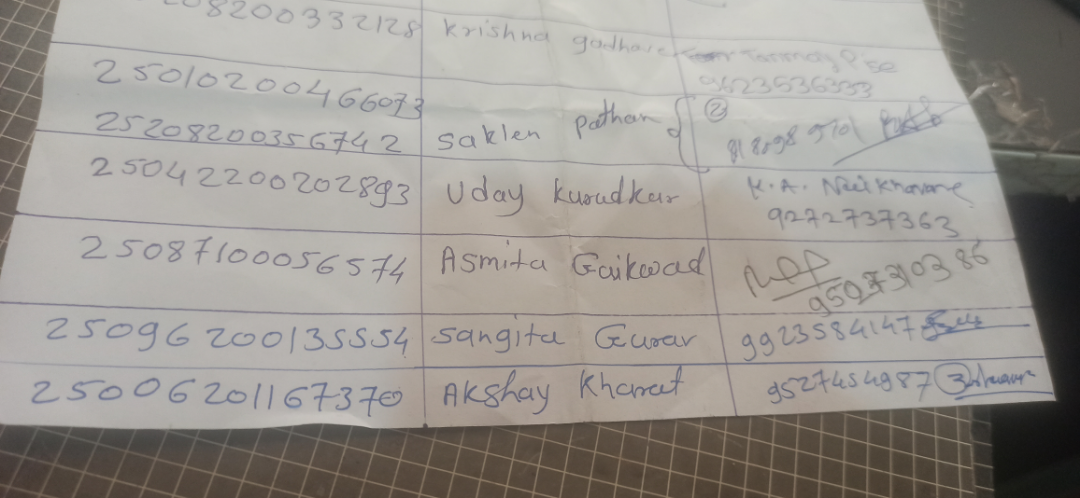 08200332128 Krishna gadhave
9623536333
25010200466073
25208200356742 Saklen Pathan { ②
25042200202893 Uday Kurudkar K. A.
9272737363
25087100056574 Asmita Gaikwad
9507310386
25096200135554 Sangita Gurav 9923584147
25006201167370 Akshay Kharat 9527454987